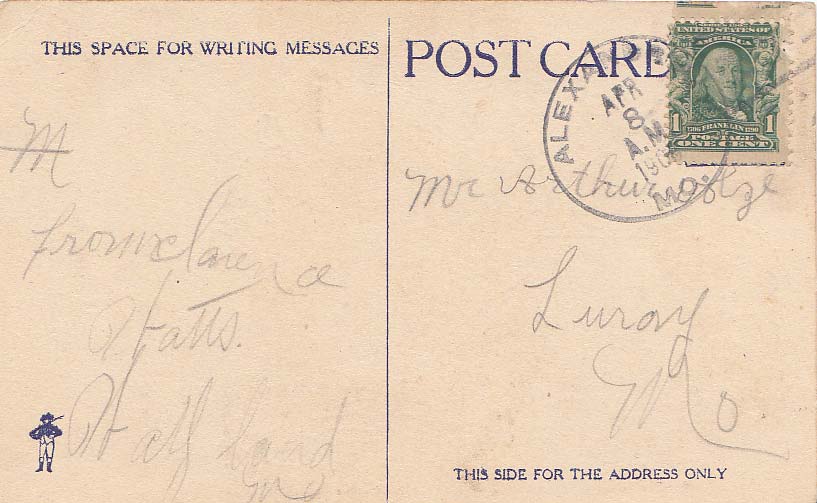 THIS SPACE FOR WRITING MESSAGES
M
from Clarence
Watts.
Wayland
Mo
POST CARD
ALEXA
APR
8
A.M.
190
MO.
UNITED STATES OF
AMERICA
1706 FRANKLIN 1790
1 POSTAGE 1
ONE CENT
Mr Arthur
Luray
Mo
THIS SIDE FOR THE ADDRESS ONLY